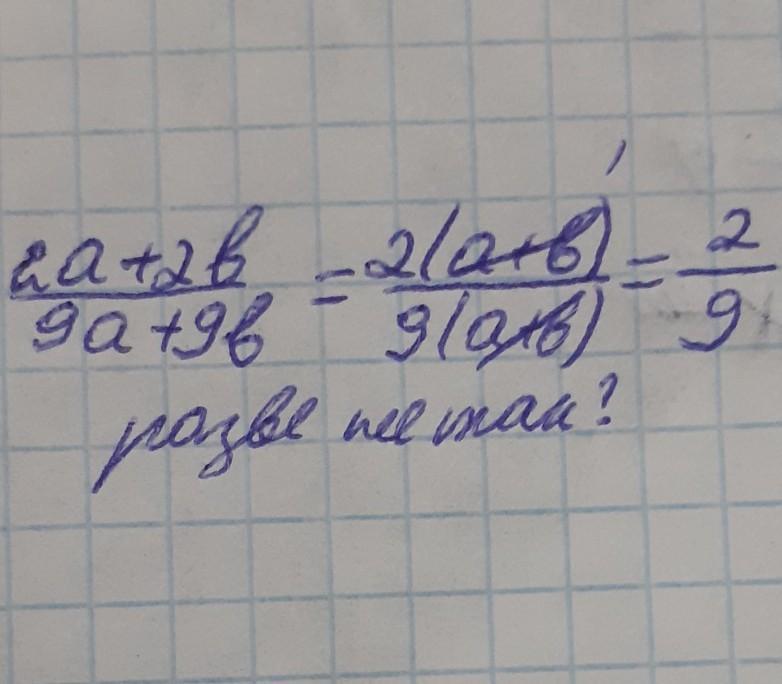 2a+2b/9a+9b = 2(a+b)/9(a+b) = 2/9
разве не так?